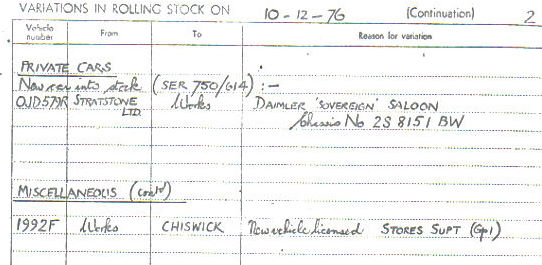 VARIATIONS IN ROLLING STOCK ON 10-12-76 (Continuation) 2
Vehicle number From To Reason for variation
PRIVATE CARS
New car into stock (SER 750/614) :-
OJD579R STRATSTONE LTD. Works DAIMLER 'SOVEREIGN' SALOON
Chassis No 2S 8151 BW
MISCELLANEOUS (contd)
1992F Works CHISWICK New vehicle licensed STORES SUPT (Gp1)